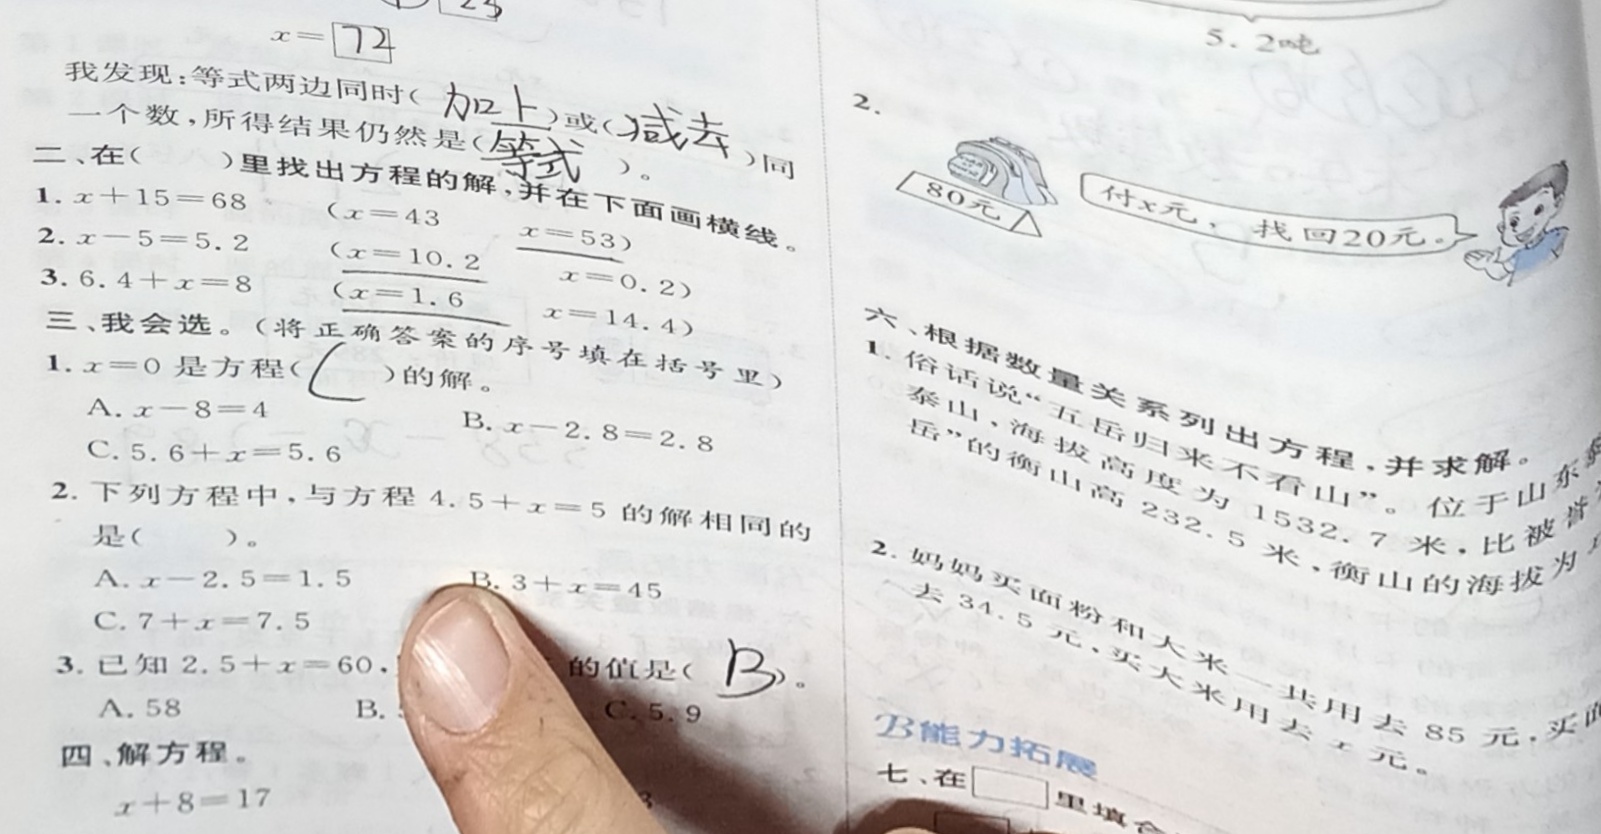 25
x=72
我发现:等式两边同时(加上)或(减去)同
一个数,所得结果仍然是(等式)。
二、在(  )里找出方程的解,并在下面画横线。
1. x+15=68 (x=43 x=53)
2. x-5=5.2 (x=10.2 x=0.2)
3. 6.4+x=8 (x=1.6 x=14.4)
三、我会选。(将正确答案的序号填在括号里)
1. x=0 是方程(C)的解。
A. x-8=4 B. x-2.8=2.8
C. 5.6+x=5.6
2. 下列方程中,与方程 4.5+x=5 的解相同的
是(  )。
A. x-2.5=1.5 B. 3+x=45
C. 7+x=7.5
3. 已知 2.5+x=60, 的值是(B)。
A. 58 B. C. 5.9
四、解方程。
x+8=17
5.2吨
2.
80元
付x元,找回20元。
六、根据数量关系列出方程,并求解。
1. 俗话说“五岳归来不看山”。位于山东
泰山,海拔高度为 1532.7 米,比被誉
岳”的衡山高 232.5 米,衡山的海拔为
2. 妈妈买面粉和大米一共用去 85 元,买
去 34.5 元,买大米用去 x 元。
B能力拓展
七、在 里填合